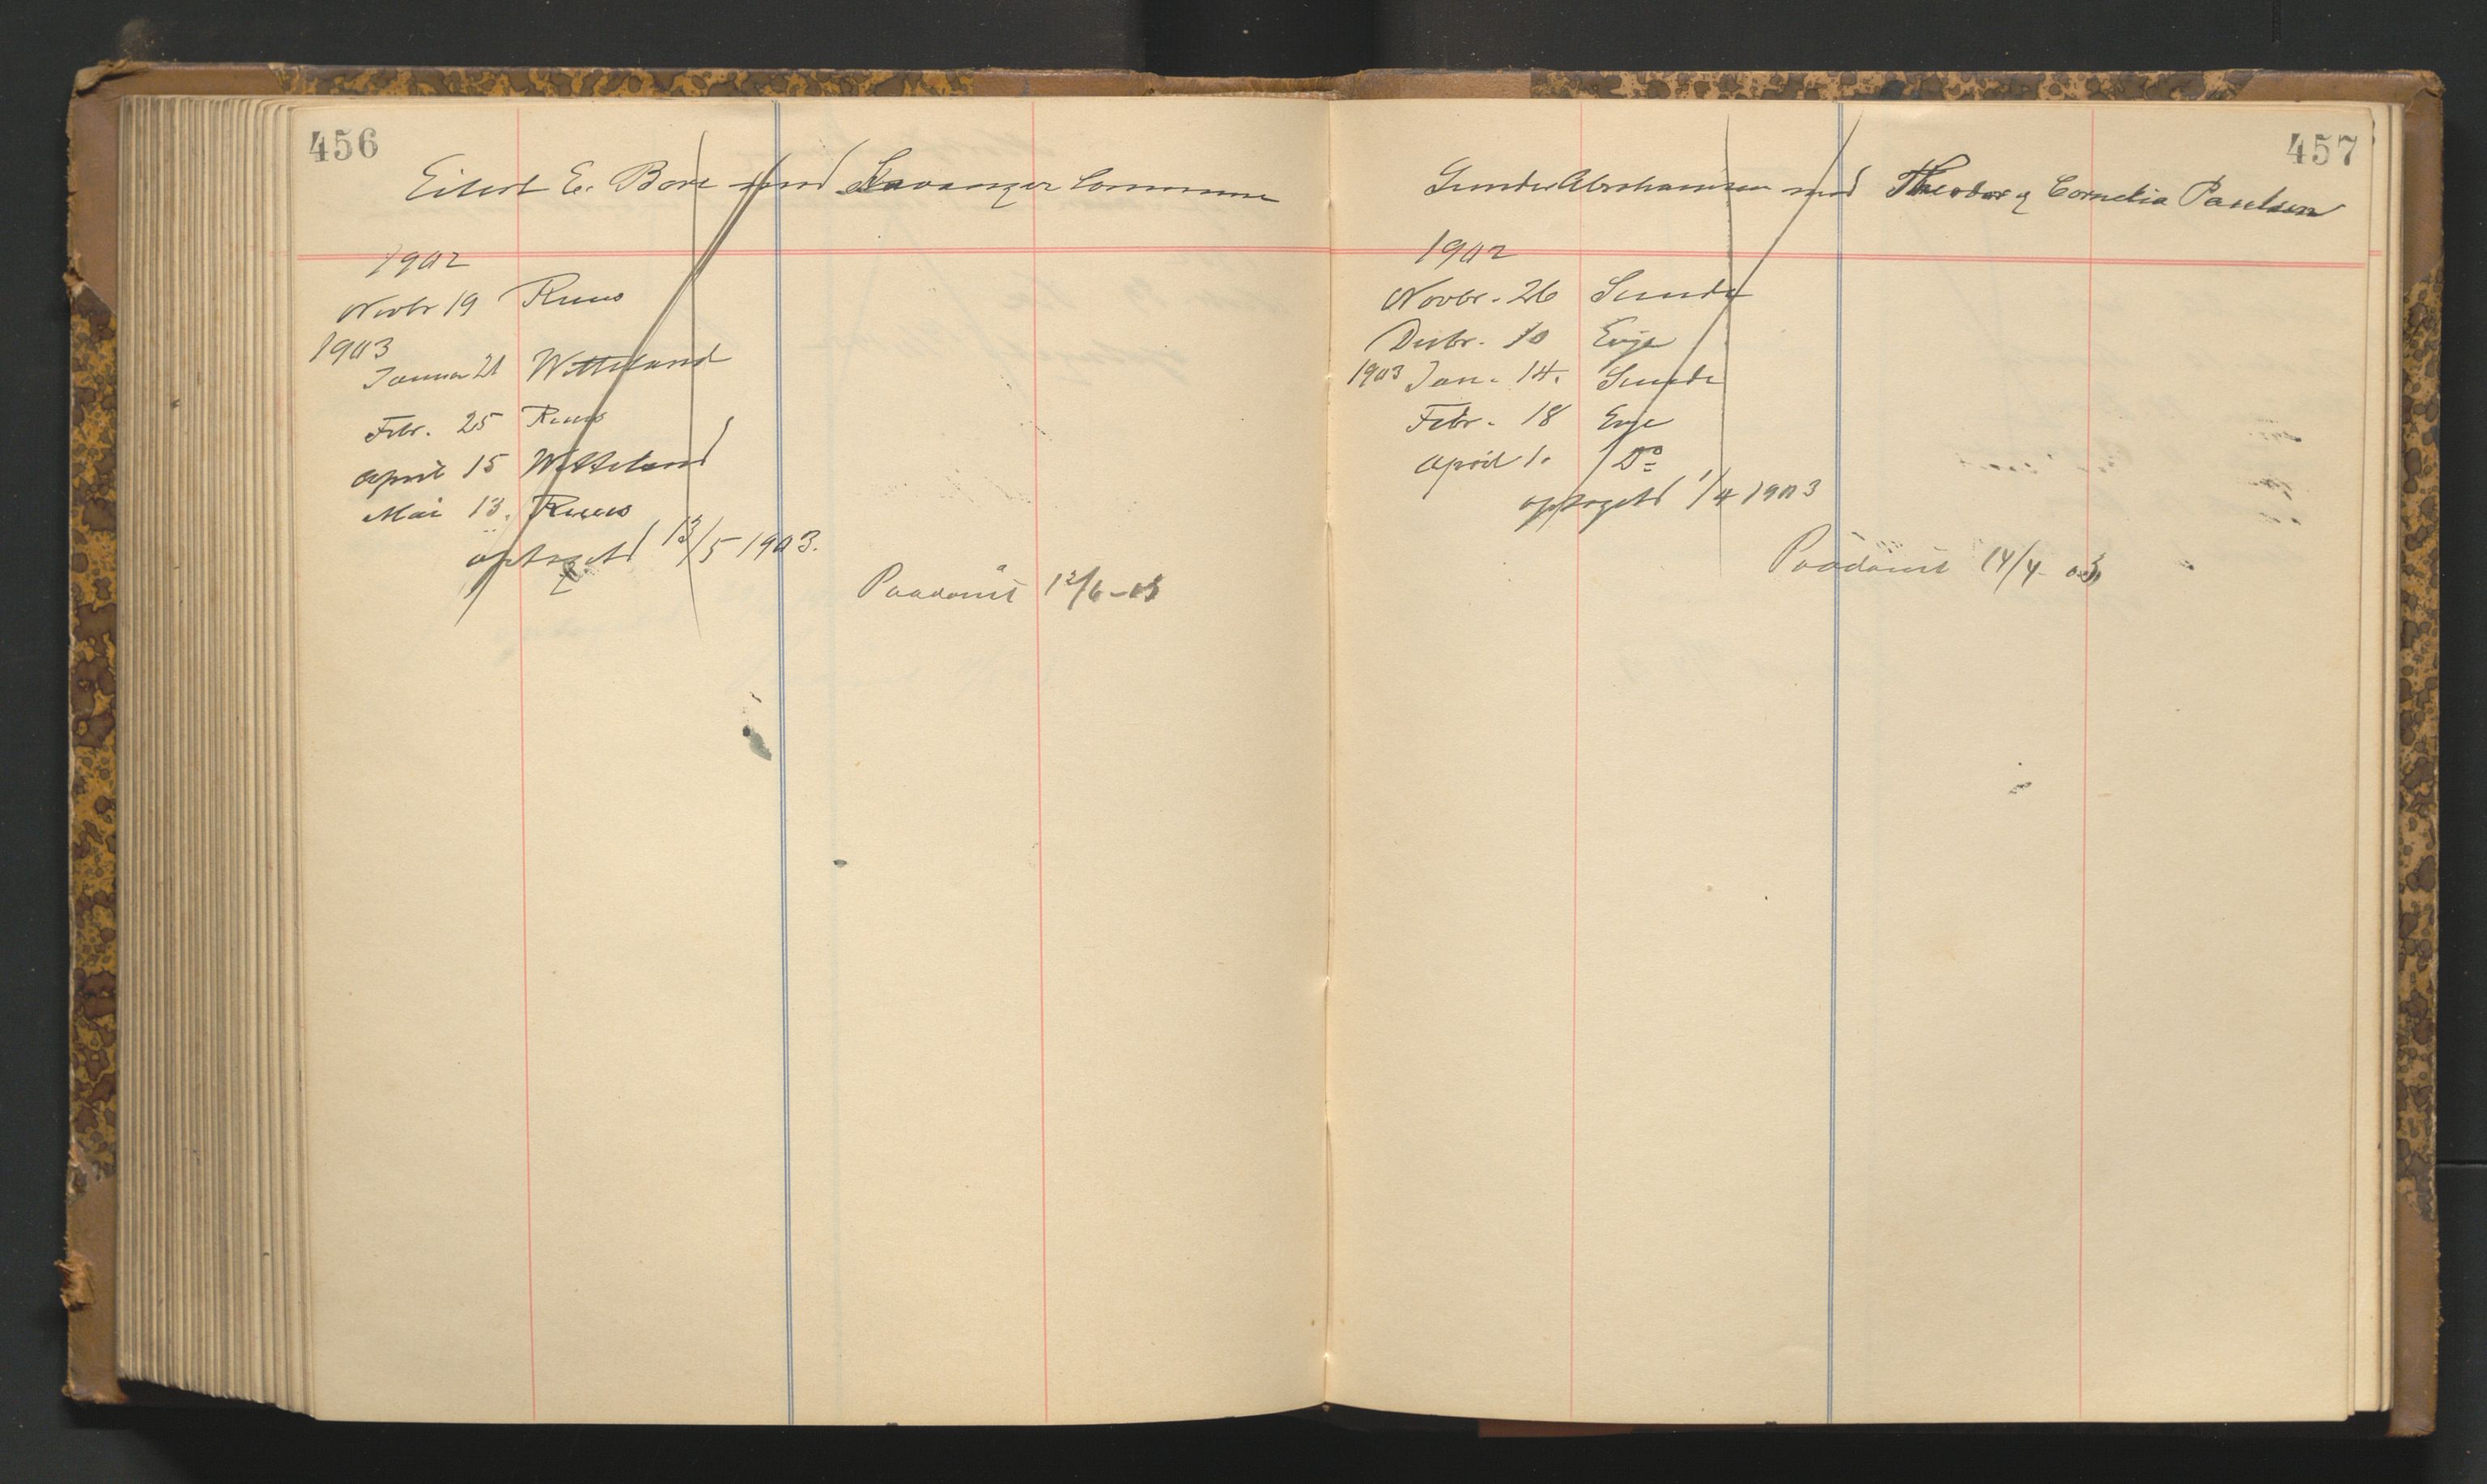 456
Eilert E. Bore mod Stavanger Commune
1902
Novbr 19 Ruus
1903
Januar 21 Witteland
Febr. 25 Ruus
April 15 Witteland
Mai 13. Ruus
optaget 13/5 1903.
Paadømt 12/6-03
457
Gunder Abrahamsen mod Theodor og Cornelia Paulsen
1902
Novbr. 26 Sunde
Decbr. 10 Enge
1903 Jan. 14. Sunde
Febr. 18 Enge
April 1. Do
optaget 1/4 1903
Paadømt 14/4 03